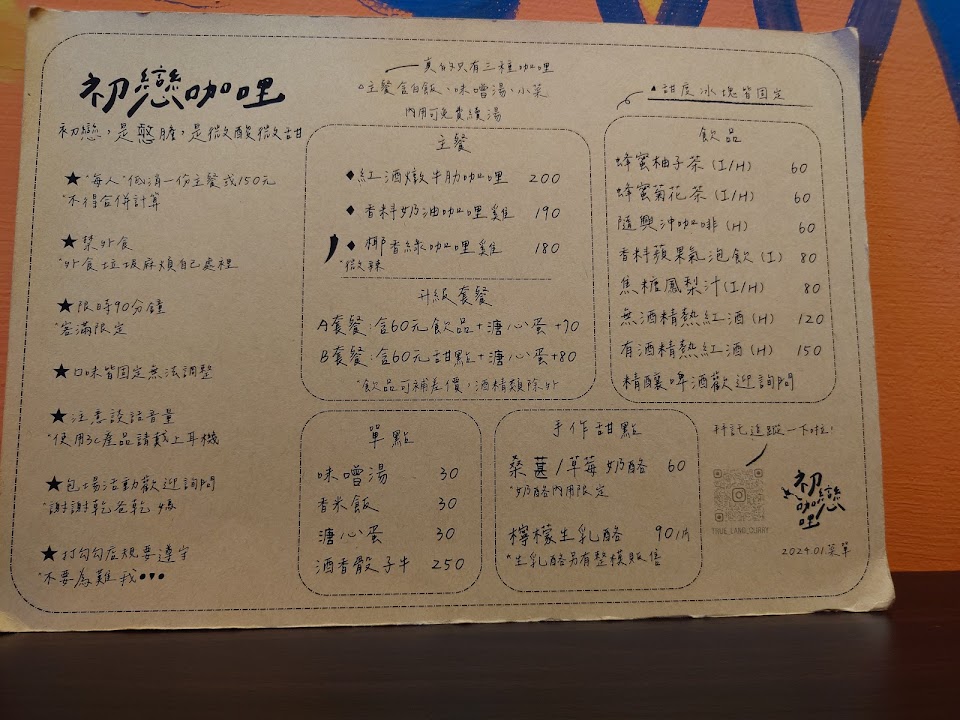 初戀咖哩
初戀，是憨膽，是微酸微甜
★"每人"低消一份主餐或150元
*不得合併計算
★禁外食
*外食垃圾麻煩自己處裡
★限時90分鐘
*客滿限定
★口味皆固定無法調整
★注意談話音量
*使用3C產品請戴上耳機
★包場活動歡迎詢問
*謝謝乾爸乾媽
★打勾勾店規要遵守
*不要為難我•••
真的只有三種咖哩
主餐含白飯、味噌湯、小菜
內用可免費續湯
主餐
♦紅酒燉牛肋咖哩 200
♦香料奶油咖哩雞 190
♦椰香綠咖哩雞 180
*微辣
升級套餐
A套餐:含60元飲品+溏心蛋+70
B套餐:含60元甜點+溏心蛋+80
*飲品可補差價，酒精類除外
▲甜度冰塊皆固定
飲品
蜂蜜柚子茶(I/H) 60
蜂蜜菊花茶(I/H) 60
隨興沖咖啡(H) 60
香料蘋果氣泡飲(I) 80
焦糖鳳梨汁(I/H) 80
無酒精熱紅酒(H) 120
有酒精熱紅酒(H) 150
精釀啤酒歡迎詢問
單點
味噌湯 30
香米飯 30
溏心蛋 30
酒香骰子牛 250
手作甜點
桑葚/草莓奶酪 60
*奶酪內用限定
檸檬生乳酪 90/片
*生乳酪另有整模販售
拜託追蹤一下啦!
TRUE_LANG.CURRY
初戀
咖哩
2024.01菜單